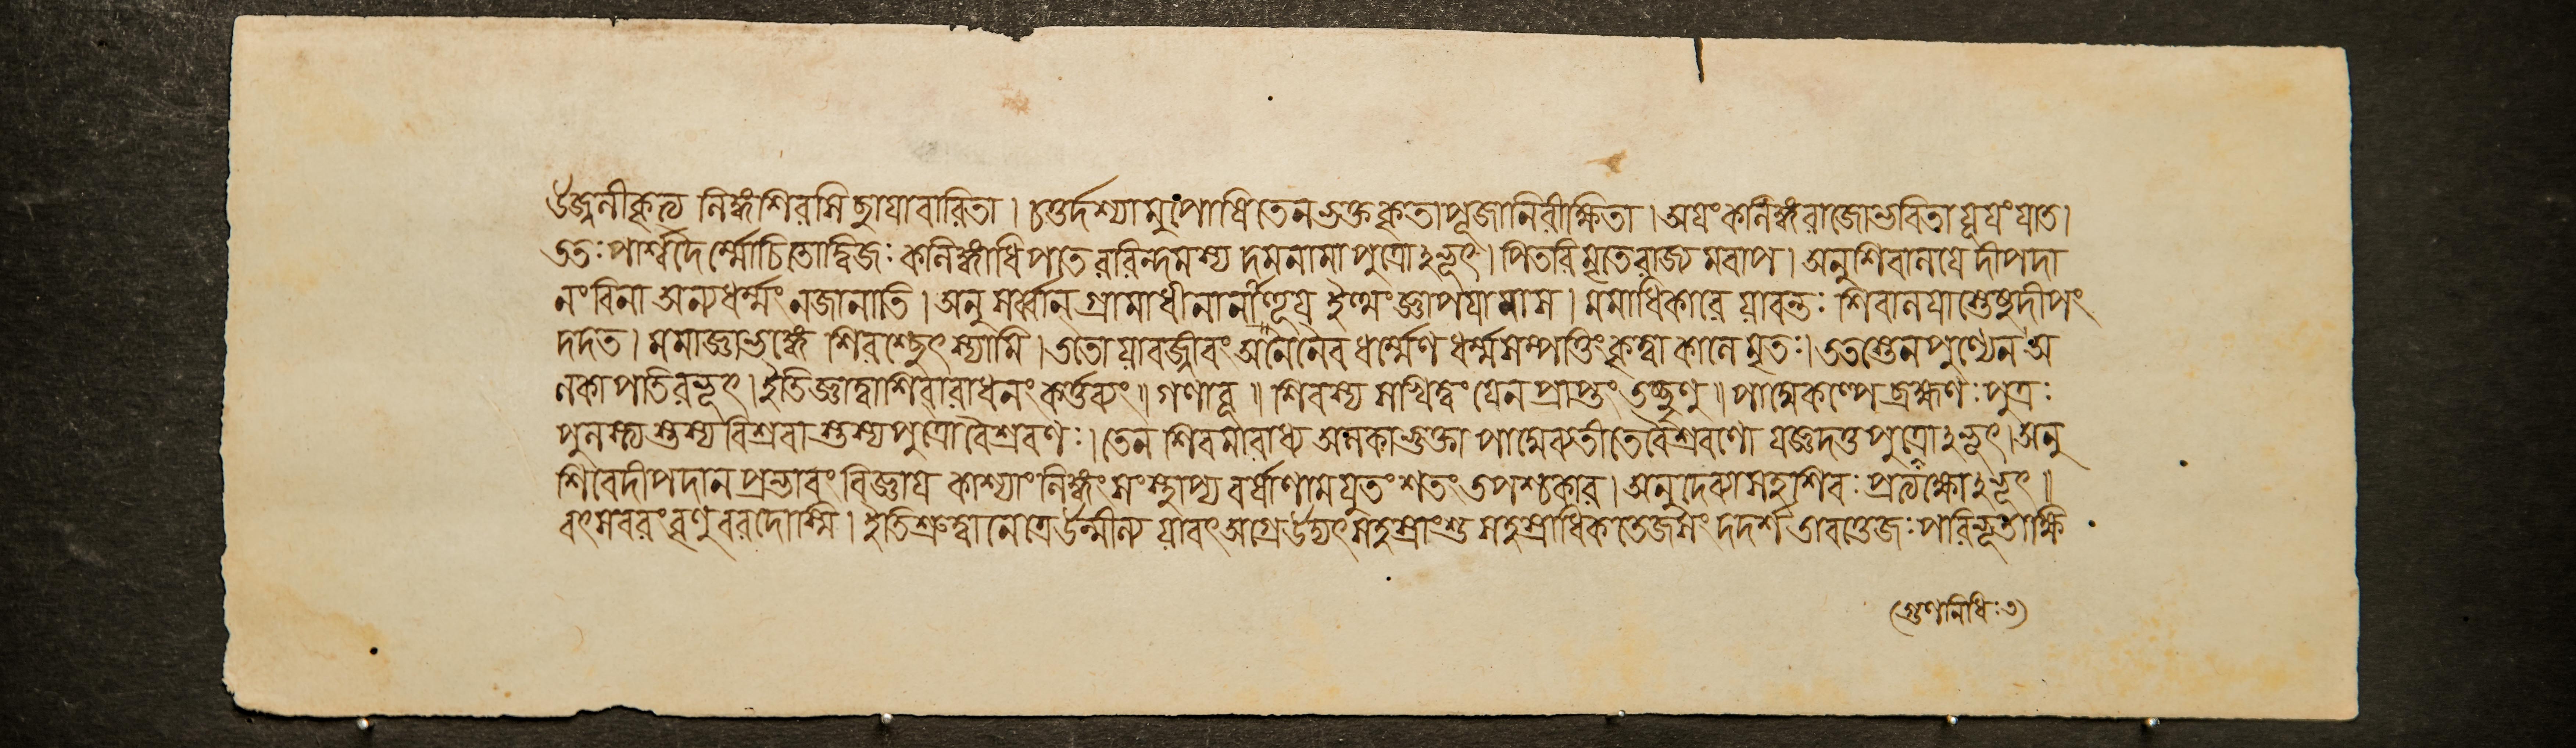 উজ্জ্বলীকৃত্য লিঙ্গশিরসি ছায়াবারিতা। চতুর্দশ্যামুপোষিতেনভক্তকৃতাপূজানিরীক্ষিতা। অয়ংকলিঙ্গরাজোভবিতাযূয়ংযাত।
ততঃপার্শ্বদৈর্ম্মোচিতোদ্বিজঃ কলিঙ্গাধিপতেররিন্দমস্য দমনামাপুত্রোঽভূৎ। পিতরিমৃতেরাজ্যমবাপ। অনুশিবালয়েদীপদা
নংবিনা অন্যধর্ম্মংনজানাতি। অনু সর্ব্বান্ গ্রামাধীনানীণূয় ইত্থংজ্ঞাপয়ামাস। মমাধিকারে যাবন্তঃ শিবালয়াস্তেষুদীপং
দদত। মমাজ্ঞাভঙ্গে শিরশ্ছেৎস্যামি। ততো যাবজ্জীবং অনেনৈবধর্ম্মেণ ধর্ম্মসম্পত্তিংকৃত্বা কালে মৃতঃ। ততস্তেনপুণ্যেন অ
লকাপতিরভূৎ। ইতিজ্ঞাত্বাশিবারাধনংকর্ত্তব্যং॥ গণাবূ॥ শিবস্য সখিত্বং যেনপ্রাপ্তং তচ্ছৃণু॥ পাদ্মেকল্পেব্রহ্মণঃপুত্রঃ
পুলস্ত্যস্তস্য বিশ্রবাস্তস্যপুত্রোবৈশ্রবণঃ। তেন শিবমারাধ্য অলকাভুক্তা পাদ্মেব্যতীতেবৈশ্রবণো যজ্ঞদত্তপুত্রোঽভূৎ। অনু
শিবেদীপদানপ্রভাবং বিজ্ঞায় কাশ্যাংলিঙ্গংসংস্থাপ্য বর্ষাণামযুতংশতংতপশ্চকার। অনুদেব্যাসহশিবঃপ্রত্যক্ষোঽভূৎ॥
বৎসবরংবৃণুবরদোস্মি। ইতিশ্রুত্বানেত্রেউন্মীল্য যাবৎঅগ্রেউদ্যৎসহস্রাংশুসহস্রাধিকতেজসং দদর্শ তাবত্তেজঃপরিভূতাক্ষি
(গুণনিধিঃ৩)